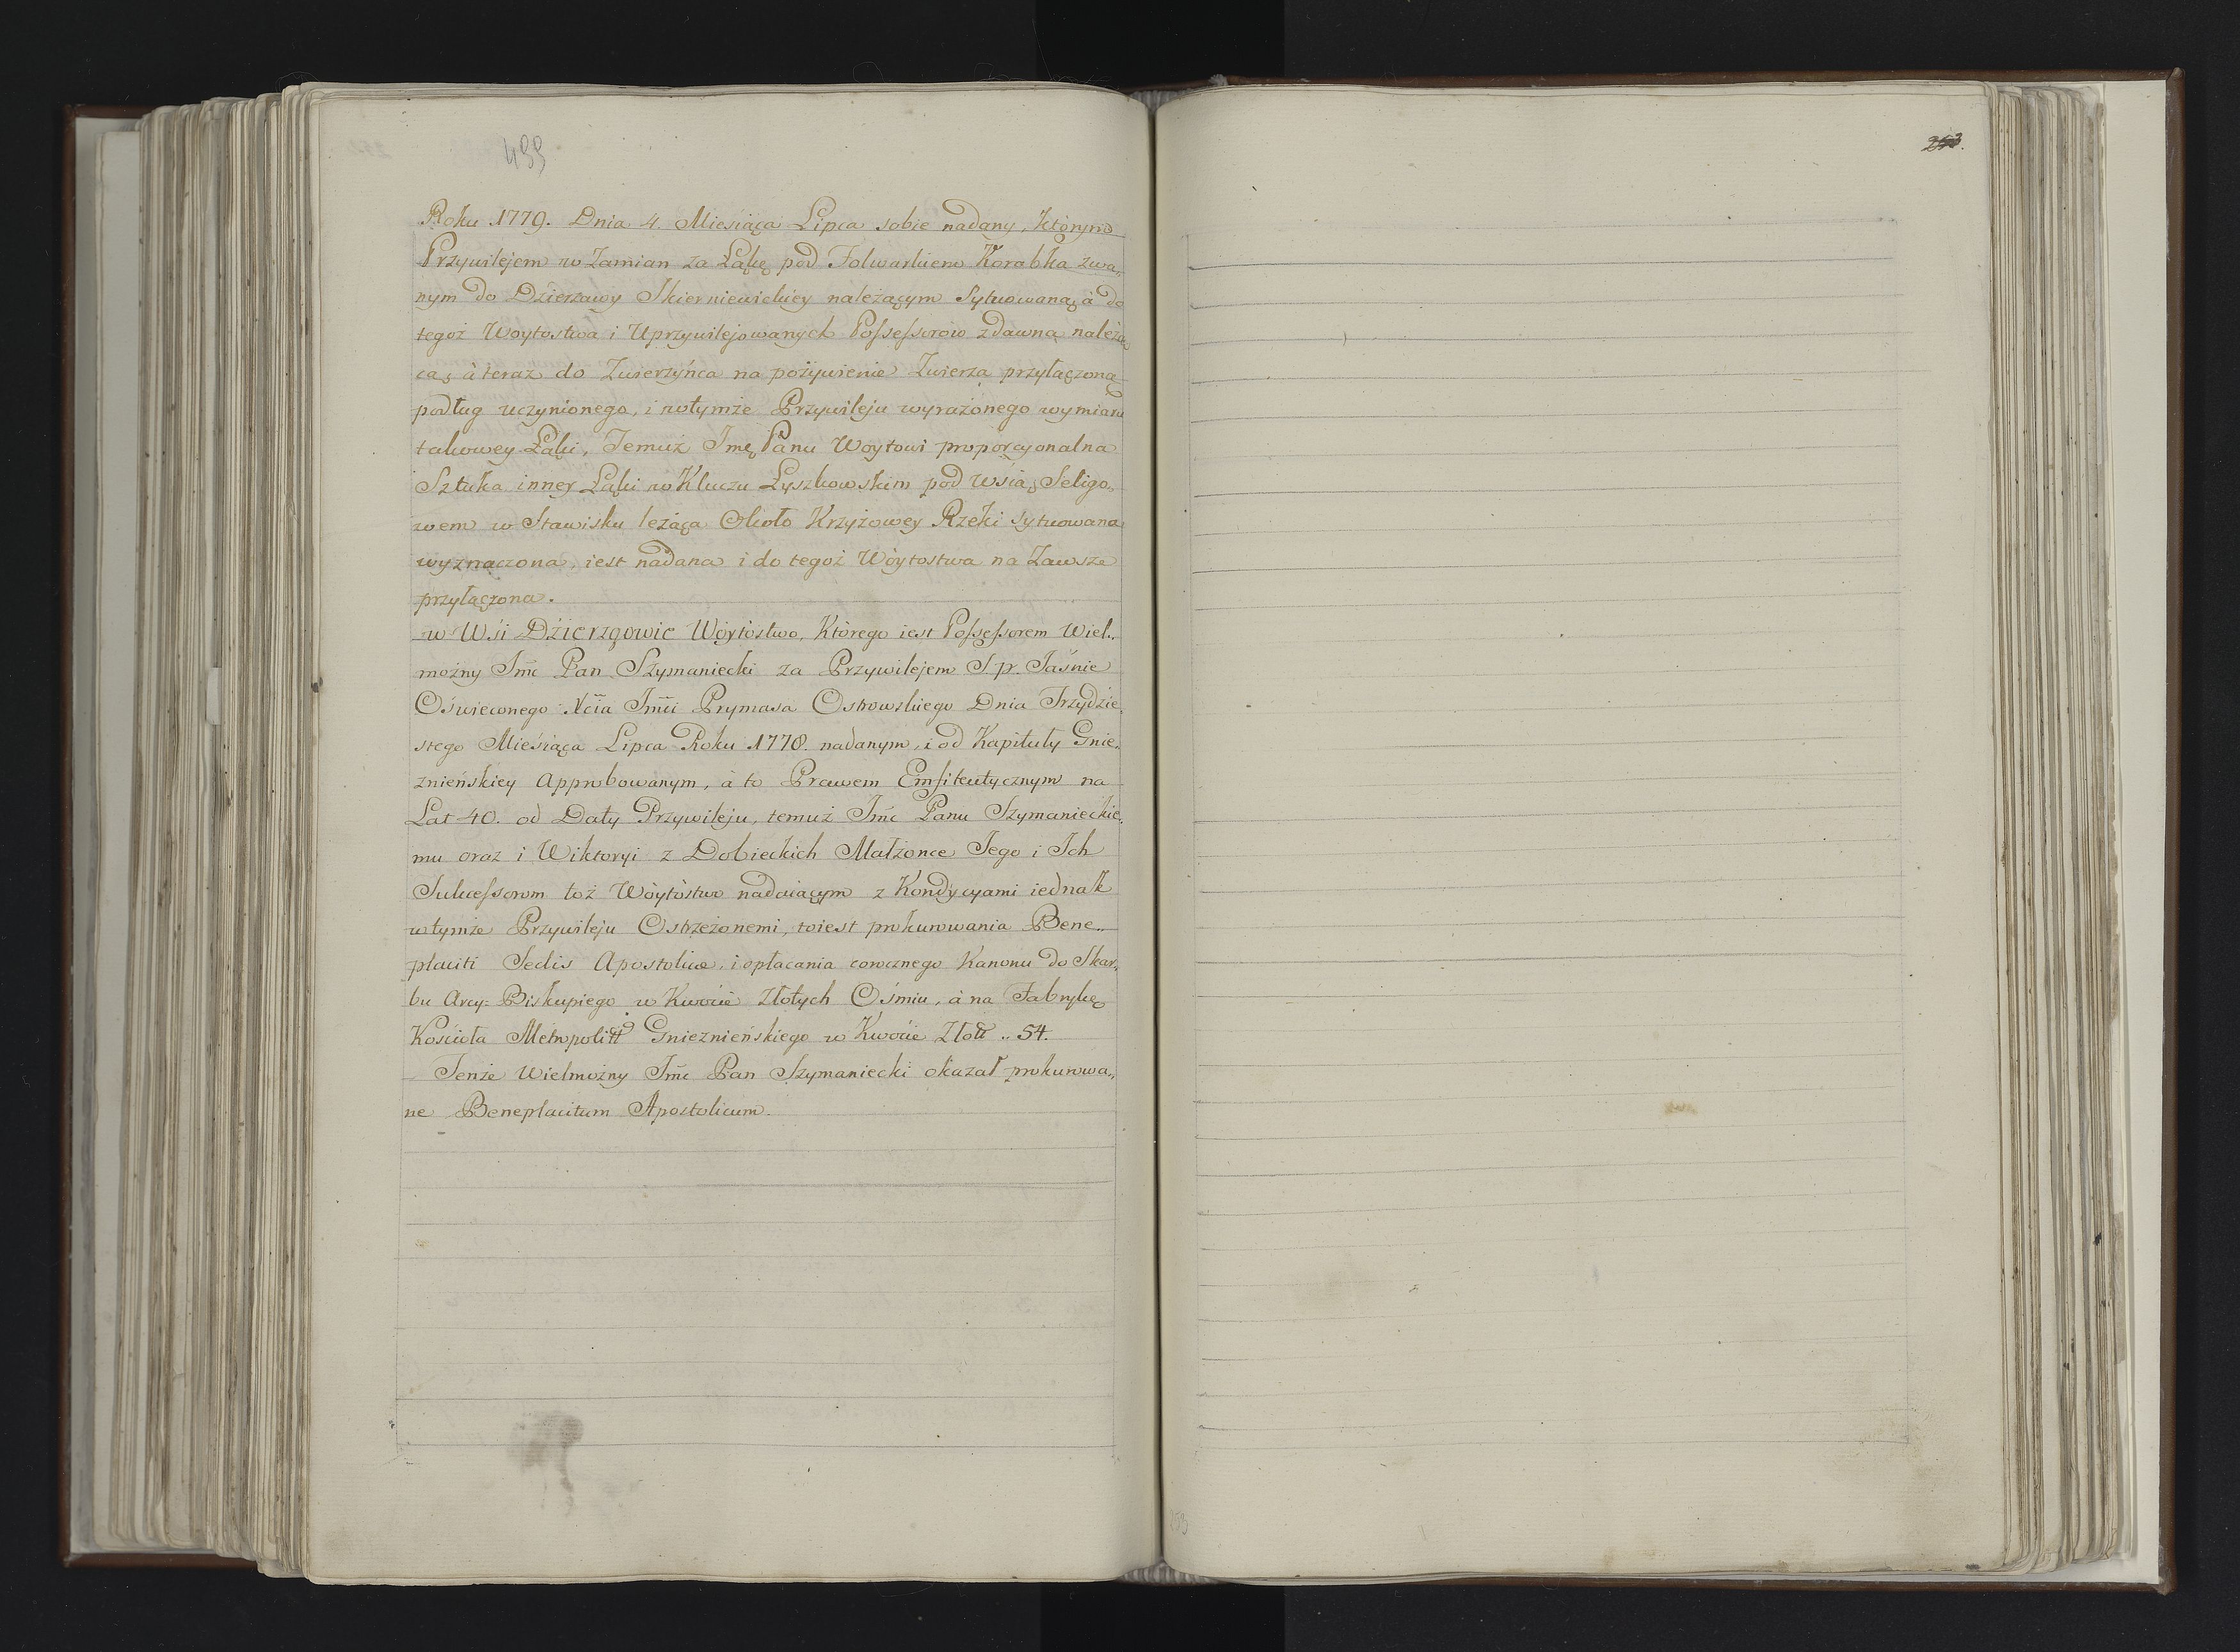 499
Roku 1779. Dnia 4. Miesiąca Lipca sobie nadany, którym
Przywilejem w Zamian za Łąkę pod Folwarkiem Korabka zwa„
nym do Dzierzawy Skierniewickiey należącym Sytuowaną, à do
tegoż Woytostwa i Uprzywilejowanych Possessorow zdawna należą
cą, à teraz do Zwierzyńca na pożywienie Zwierza przyłączoną
podług uczynionego, i wtymże Przywileju wyrażonego wymiaru
takowey Łąki, Temuż Imć Panu Woytowi proporcyonalna
Sztuka inney Łąki w Kluczu Łyszkowskim pod Wsią Seligo„
wem w Stawisku leżąca Około Krzyżowey Rzeki sytuowana
wyznaczona, iest nadana i do tegoż Wóytostwa na Zawsze
przyłączona.
w Wsi Dźierzgowie Wóytòstwo, Którego iest Possessorem Wiel„
możny Imć Pan Szymaniecki za Przywilejem S. p. Jaśnie
Oświeconego Xcia Imci Prymasa Ostrowskiego Dnia Trzydzie„
stego Mieśiąca Lipca Roku 1778. nadanym, i od Kapituły Gnie„
znieńskiey Approbowanym, à to Prawem Emfiteutycznym na
Lat 40. od Daty Przywileju, temuż Imć Panu Szymanieckie„
mu oraz i Wiktoryi z Dobieckich Małżonce Jego i Ich
Sukcessorom toż Wòytòstwo nadaiącym z Kondycyami iednak
wtymże Przywileju Ostrzeżonemi, toiest prokurowania Bene„
placiti Sedis Apostolicæ, i opłacania corocznego Kanonu do Skar„
bu Arcy=Biskupiego w Kwocie Złotych Ośmiu, à na Fabrykę
Kościoła Metropolitt Gnieznieńskiego w Kwocie Złott „ 54.
Tenże Wielmożny Imć Pan Szymaniecki okazał prokurowa„
ne Beneplacitum Apostolicum.
253